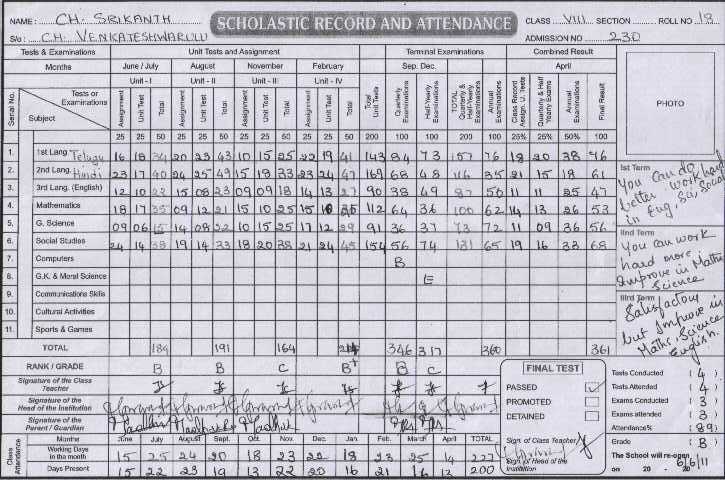 NAME: CH. SRIKANTH
SCHOLASTIC RECORD AND ATTENDANCE
CLASS VIII SECTION ROLL NO 18
S/o: CH. VENKATESHWARLU
ADMISSION NO 230
Tests & Examinations Unit Tests and Assignment Terminal Examinations Combined Result
Months June / July August November February Sep. Dec. April
Unit - I Unit - II Unit - III Unit - IV
Serial No. Tests or Examinations Subject Assignment Unit Test Total Assignment Unit Test Total Assignment Unit Test Total Assignment Unit Test Total Total Unit Tests Quarterly Examinations Half-Yearly Examinations TOTAL Quarterly & Half-Yearly Examinations Annual Examinations Class Record Assign. U. Tests Quarterly & Half Yearly Exams Annual Examinations Final Result
25 25 50 25 25 50 25 25 50 25 25 50 200 100 100 200 100 25% 25% 50% 100
PHOTO
1. 1st Lang. Telugu 16 18 34 20 23 43 10 15 25 22 19 41 143 84 73 157 76 18 20 38 76
2. 2nd Lang. Hindi 23 17 40 24 25 49 15 18 33 23 24 47 169 68 48 116 35 21 15 18 61
3. 3rd Lang. (English) 12 10 22 15 08 23 09 09 18 14 13 27 90 38 49 87 50 11 11 25 47
4. Mathematics 18 17 35 09 12 21 10 15 25 15 112 64 36 100 62 14 13 26 53
5. G. Science 09 06 15 14 08 22 10 15 25 17 12 29 91 36 37 73 72 11 09 36 56
6. Social Studies 24 14 38 19 14 33 18 20 38 21 24 45 154 56 74 131 65 19 16 33 68
7. Computers B
8. G.K. & Moral Science E
9. Communications Skills
10. Cultural Activities
11. Sports & Games
TOTAL 184 191 164 346 317 360 361
RANK / GRADE B B C B+ B C
Signature of the Class Teacher
Signature of the Head of the Institution
Signature of the Parent / Guardian
1st Term
You can do better work hard in Eng, Sci, Social
IInd Term
You can work hard more Improve in Maths Science
IIIrd Term
Satisfactory but Improve in Maths, Science English.
FINAL TEST
PASSED
PROMOTED
DETAINED
Sign. of Class Teacher
Sign. of Head of the Institution
Tests Conducted ( 4 )
Tests Attended ( 4 )
Exams Conducted ( 3 )
Exams attended ( 3 )
Attendance% ( 89 )
Grade ( B )
The School will re-open
on 20 - 20
6/6/11
Class Attendance Months June July August Sept. Oct. Nov. Dec. Jan. Feb. March April TOTAL
Working Days in the month 15 25 24 20 18 23 22 18 23 25 14 227
Days Present 15 22 23 19 13 22 20 16 21 16 13 200